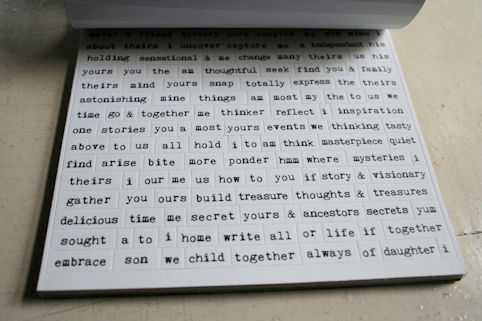 a friend mystery cure inspire my
about theirs i uncover capture me a independent his
holding sensational & me change many theirs us his
yours you the am thoughtful seek find you & family
theirs mind yours snap totally express the theirs
astonishing mine things am most my the to us we
time go & together me thinker reflect i inspiration
one stories you a most yours events we thinking tasty
above to us all hold i to am think masterpiece quiet
find arise bite more ponder hmm where mysteries i
theirs i our me us how to you if story & visionary
gather you ours build treasure thoughts & treasures
delicious time me secret yours & ancestors secrets yum
sought a to i home write all or life if together
embrace son we child together always of daughter i